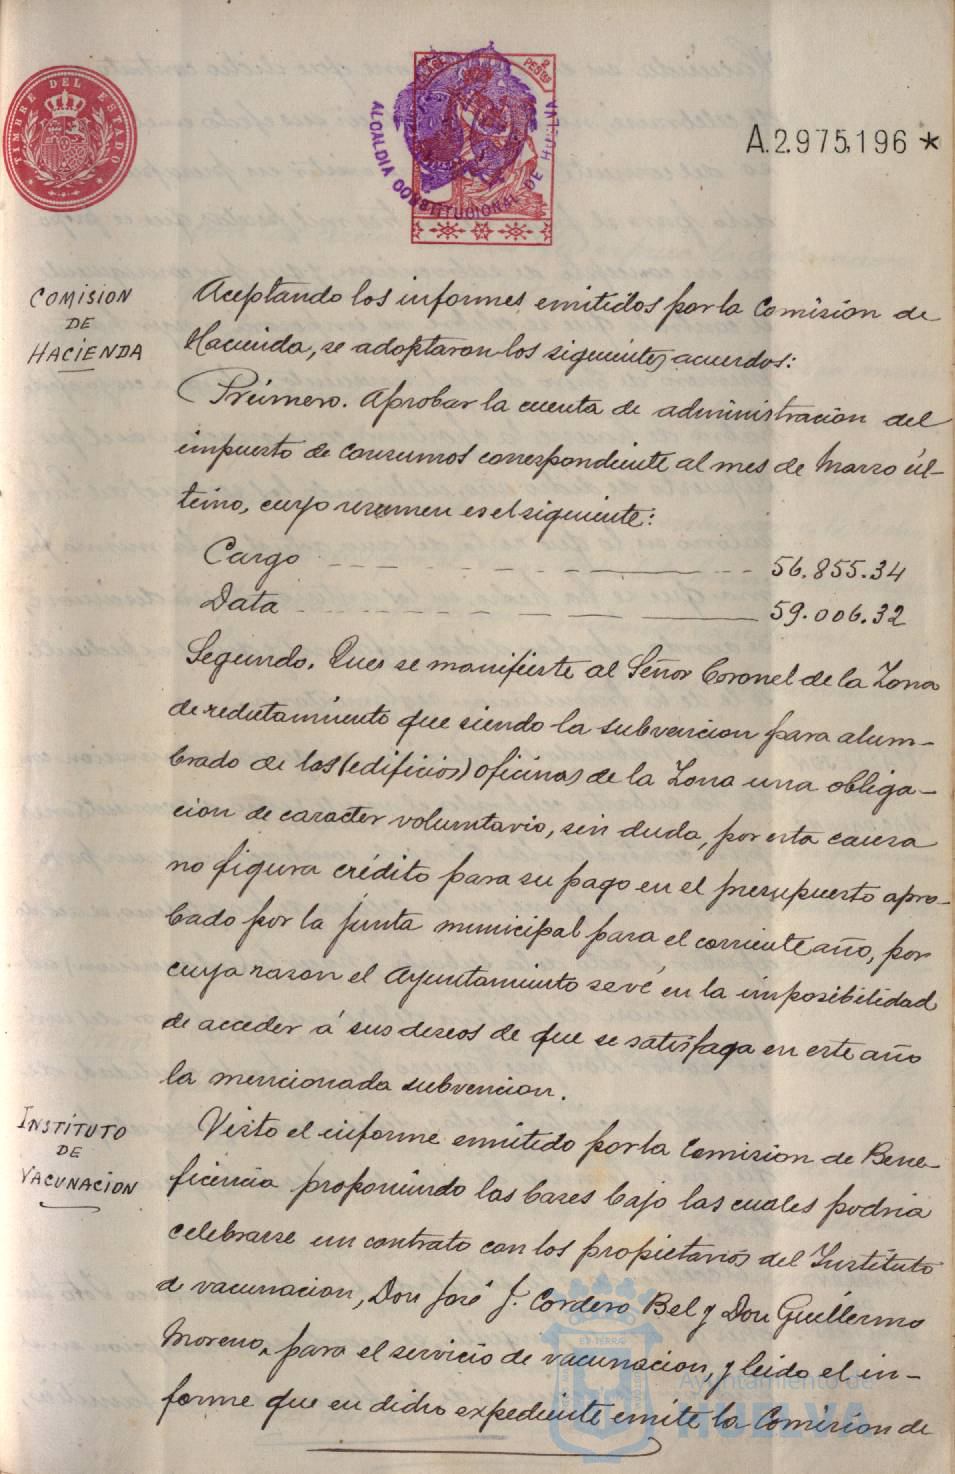 TIMBRE DEL ESTADO
2 PESETAS
ALCALDIA CONSTITUCIONAL DE HUELVA
A.2.975,196 *
COMISION
DE
HACIENDA
Aceptando los informes emitidos por la Comision de
Hacienda, se adoptaron los siguientes acuerdos:
Primero. Aprobar la cuenta de administracion del
impuesto de consumos correspondiente al mes de Marzo úl-
timo, cuyo resumen es el siguiente:
Cargo 56.855.34
Data 59.006.32
Segundo. Ques se manifieste al Señor Coronel de la Zona
de reclutamiento que siendo la subvencion para alum-
brado de las (edificios) oficinas de la Zona una obliga-
cion de caracter voluntario, sin duda, por esta causa
no figura crédito para su pago en el presupuesto apro-
bado por la junta municipal para el corriente año, por
cuya razon el Ayuntamiento se vé en la imposibilidad
de acceder á sus deseos de que se satisfaga en este año
la mencionada subvencion.
INSTITUTO
DE
VACUNACION
Visto el informe emitido por la Comision de Bene-
ficencia proponiendo las bases bajo las cuales podria
celebrarse un contrato con los propietarios del Instituto
de vacunacion, Don José J. Cordero Bel y Don Guillermo
Moreno, para el servicio de vacunacion, y leido el in-
forme que en dicho expediente emite la Comision de
Ayuntamiento de
HUELVA